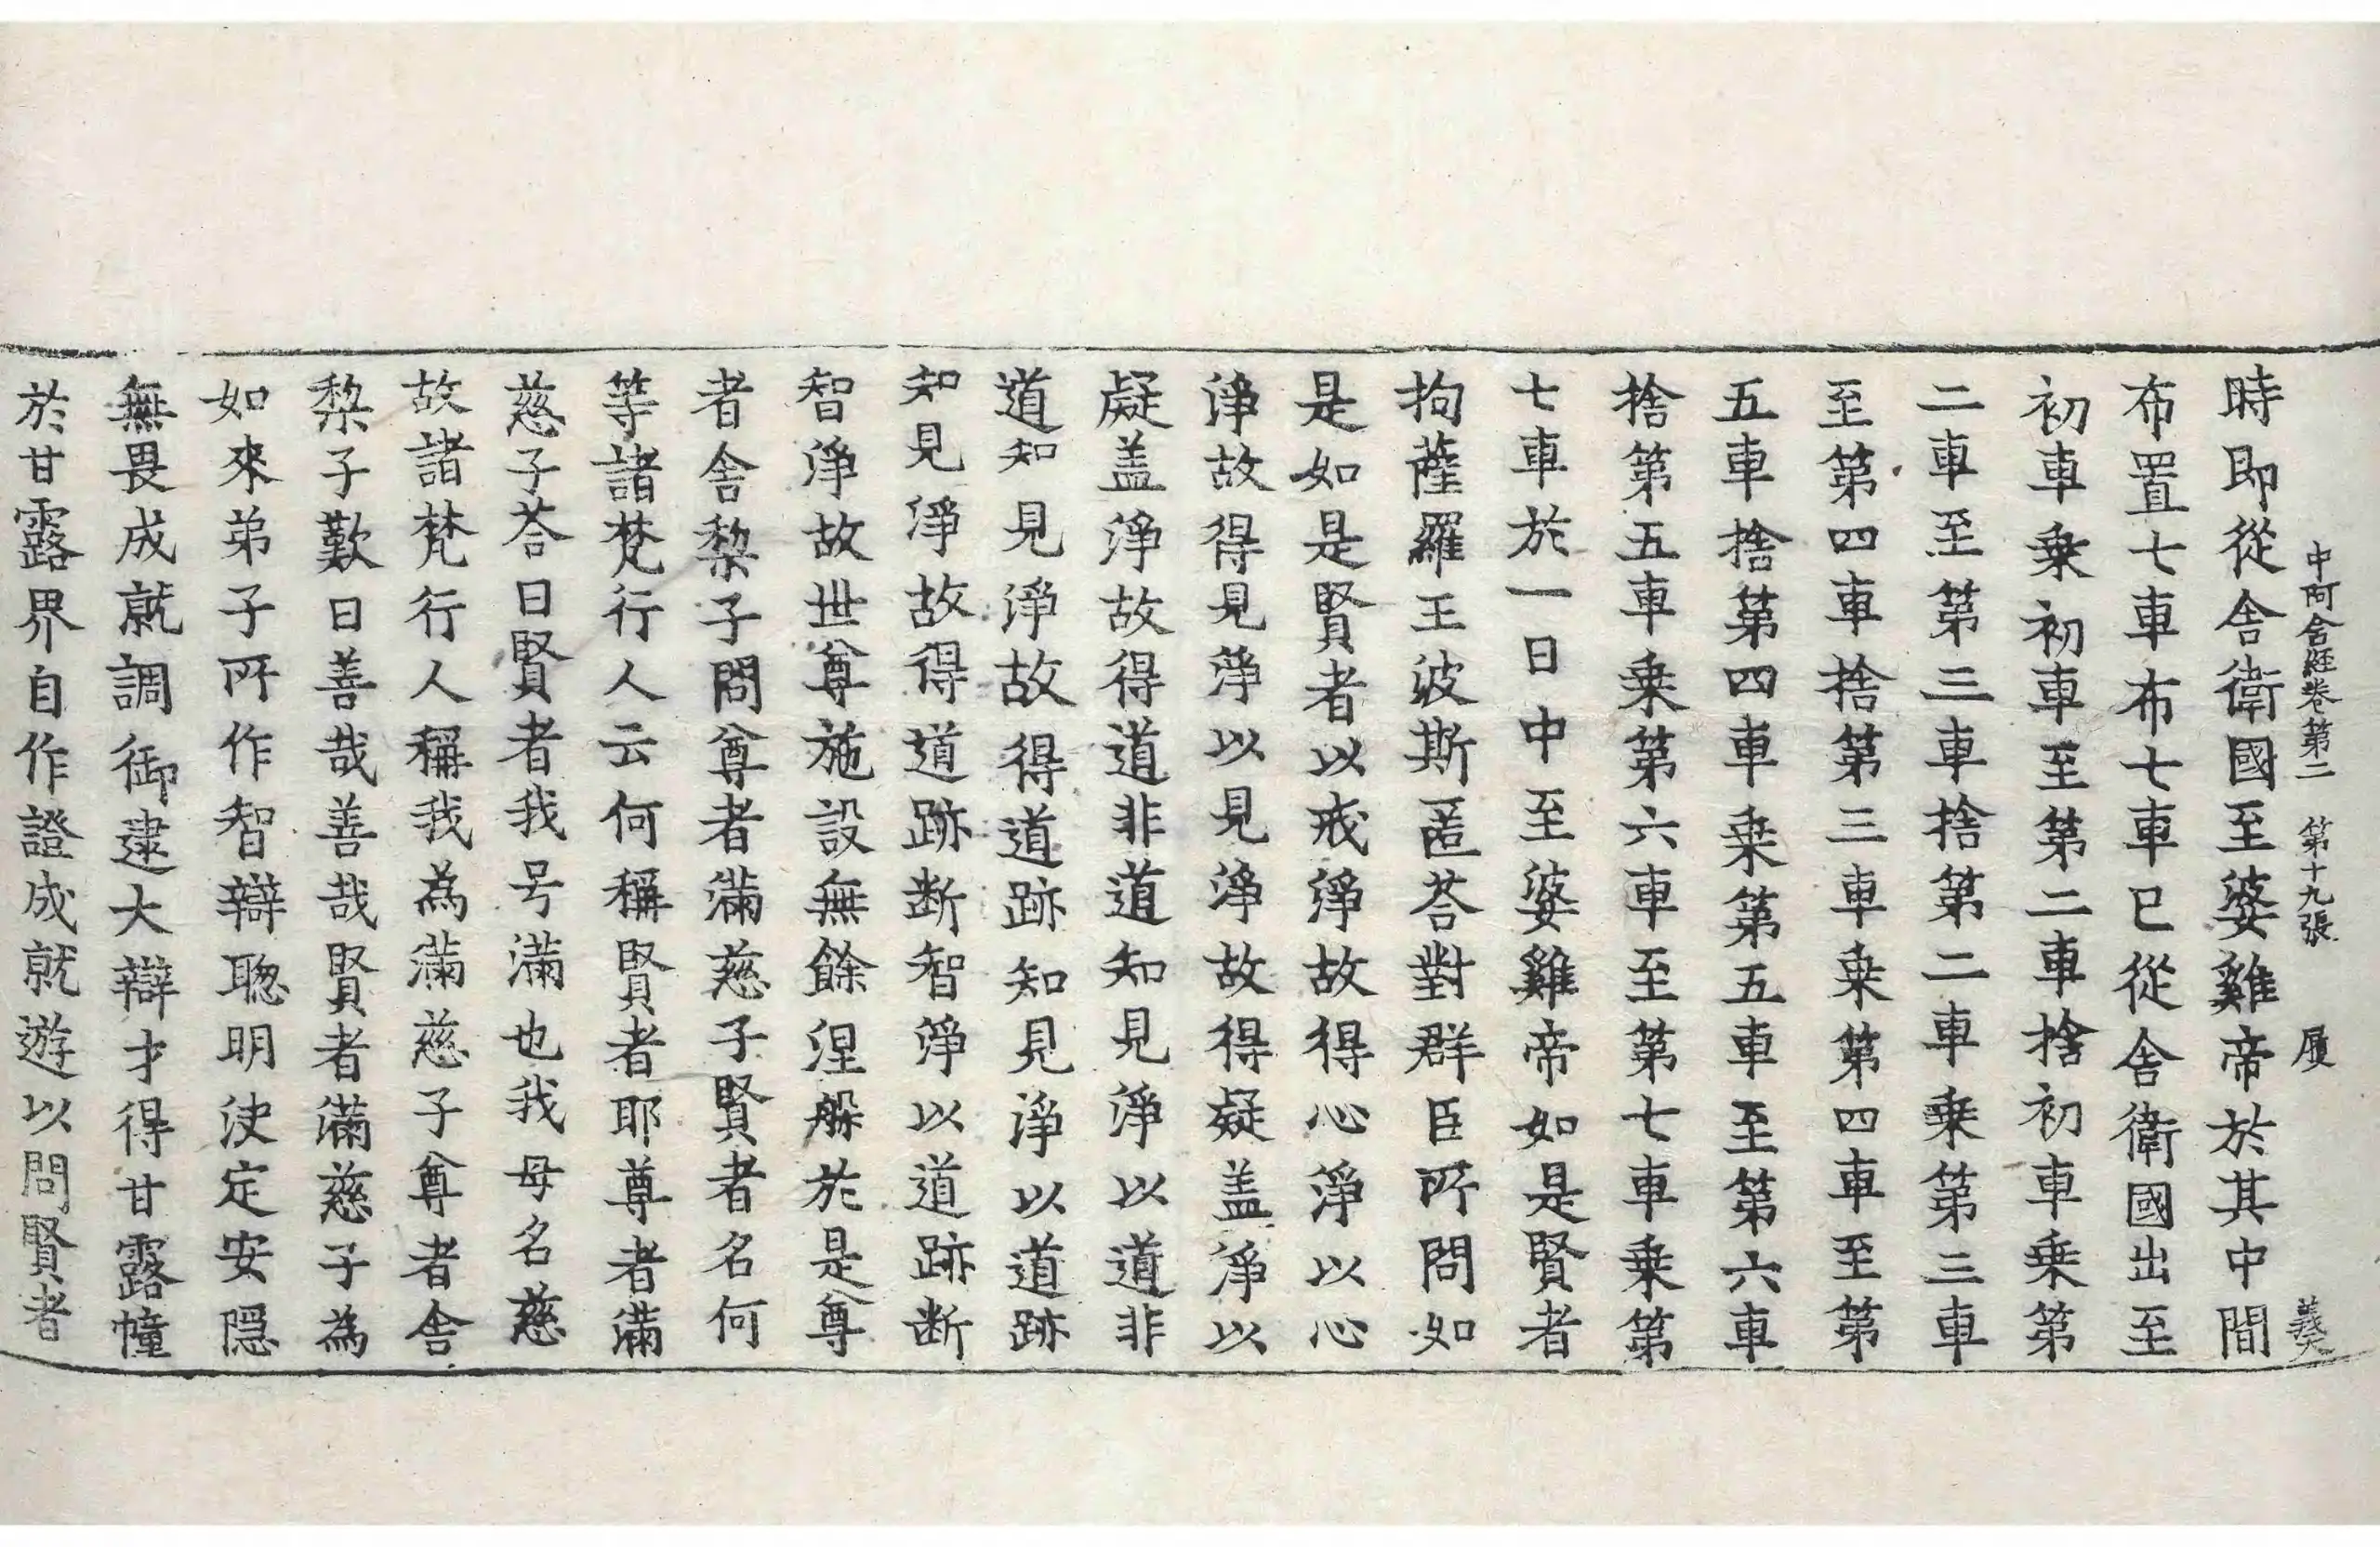 中阿含經卷第二 第十九張 履
時即從舍衛國至婆雞帝於其中間
布置七車布七車已從舍衛國出至
初車乗初車至第二車捨初車乗第
二車至第三車捨第二車乗第三車
至第四車捨第三車乗第四車至第
五車捨第四車乗第五車至第六車
捨第五車乗第六車至第七車乗第
七車於一日中至婆雞帝如是賢者
拘薩羅王波斯匿荅對群臣所問如
是如是賢者以戒淨故得心淨以心
淨故得見淨以見淨故得疑盖淨以
疑盖淨故得道非道知見淨以道非
道知見淨故得道跡知見淨以道跡
知見淨故得道跡断智淨以道跡断
智淨故世尊施設無餘涅槃於是尊
者舍梨子問尊者滿慈子賢者名何
等諸梵行人云何稱賢者耶尊者滿
慈子荅曰賢者我号滿也我母名慈
故諸梵行人稱我為滿慈子尊者舍
梨子歎曰善哉善哉賢者滿慈子為
如來弟子所作智辯聡明决定安隠
無畏成就調御逮大辯才得甘露幢
於甘露界自作證成就遊以問賢者